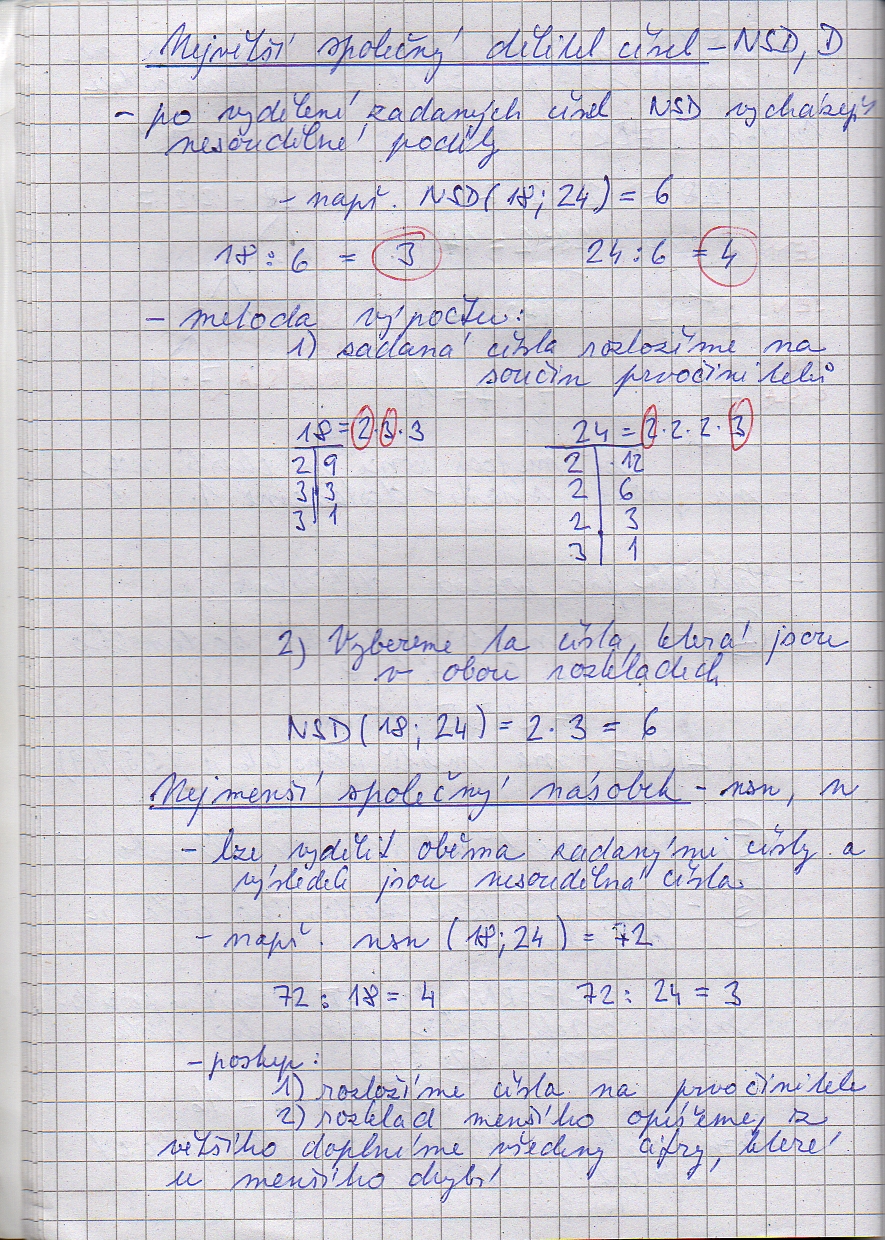 Největší společný dělitel čísel – NSD, D
– po vydělení zadaných čísel NSD vycházejí
nesoudělné podíly
– např. NSD(18; 24) = 6
18 : 6 = 3 24 : 6 = 4
– metoda výpočtu:
1) zadaná čísla rozložíme na
součin prvočinitelů
18 = 2·3·3 24 = 2·2·2·3
2 | 9 2 | 12
3 | 3 2 | 6
3 | 1 2 | 3
3 | 1
2) Vybereme ta čísla, která jsou
v obou rozkladech
NSD(18; 24) = 2·3 = 6
Nejmenší společný násobek – nsn, n
– lze vydělit oběma zadanými čísly a
výsledek jsou nesoudělná čísla
– např. nsn (18; 24) = 72
72 : 18 = 4 72 : 24 = 3
– postup:
1) rozložíme čísla na prvočinitele
2) rozklad menšího opíšeme, iz
většího doplníme všechny cifry, které
u menšího chybí